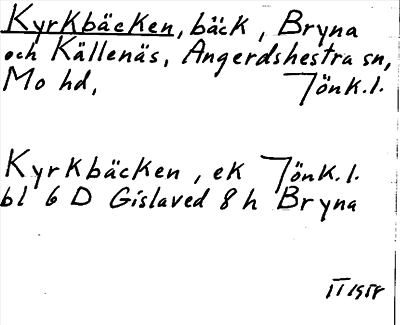 Kyrkbäcken, bäck, Bryna
och Källenäs, Angerdshestra sn,
Mo hd, Jönk.l.
Kyrkbäcken, ek Jönk.l.
bl 6 D Gislaved 8 h Bryna
II 1958